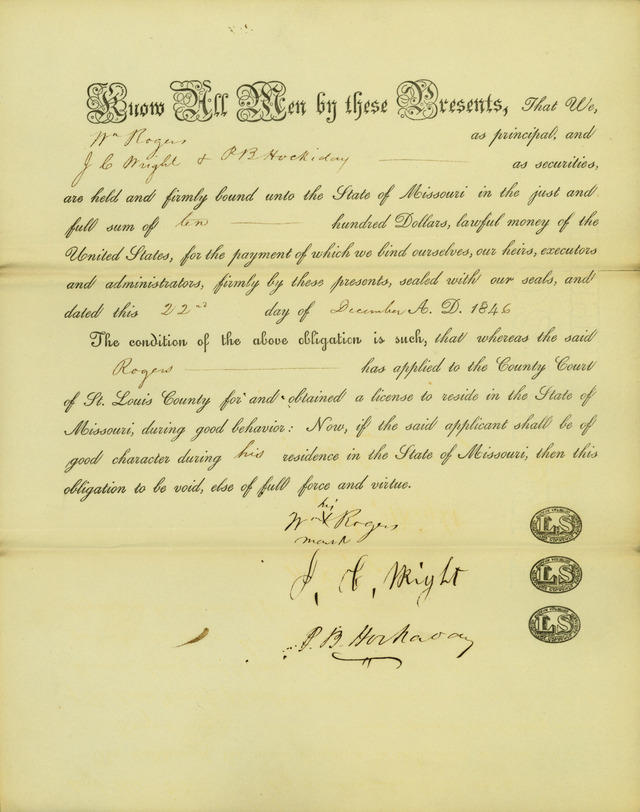 Know All Men by these Presents, That We,
Wm Rogers as principal, and
J C Wright & P B Hockaday as securities,
are held and firmly bound unto the State of Missouri in the just and
full sum of ten hundred Dollars, lawful money of the
United States, for the payment of which we bind ourselves, our heirs, executors
and administrators, firmly by these presents, sealed with our seals, and
dated this 22nd day of December A. D. 1846
The condition of the above obligation is such, that whereas the said
Rogers has applied to the County Court
of St. Louis County for and obtained a license to reside in the State of
Missouri, during good behavior: Now, if the said applicant shall be of
good character during his residence in the State of Missouri, then this
obligation to be void, else of full force and virtue.
his
Wm X Rogers
mark
LS
J. C. Wright
LS
P. B. Hockaday
LS